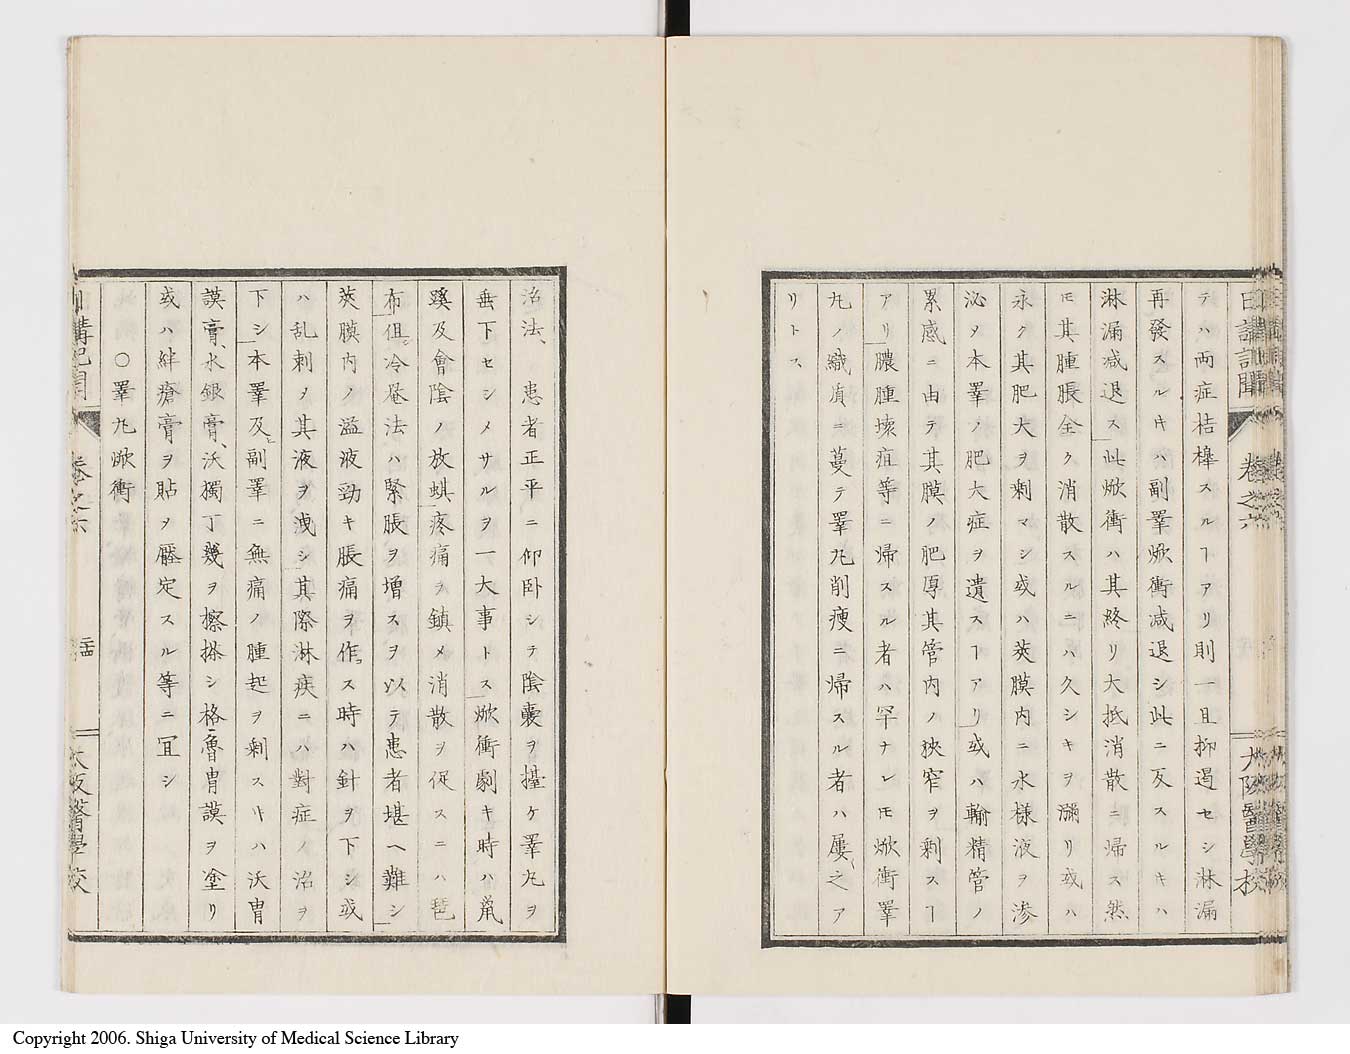 日講記聞 卷之六 大阪醫學校
テハ両症桔槹スルヿアリ則一旦抑遏セシ淋漏
再發スルキハ副睪焮衝减退シ此ニ反スルキハ
淋漏减退ス此焮衝ハ其終リ大抵消散ニ帰ス然
𪜈其腫脹全ク消散スルニハ久シキヲ瀰リ或ハ
永ク其肥大ヲ剰マシ或ハ莢膜内ニ水様液ヲ渗
泌ヲ本睪ノ肥大症ヲ遺スヿアリ或ハ輸精管ノ
累感ニ由テ其膜ノ肥厚其管内ノ狹窄ヲ剰スヿ
アリ膿腫壊疽等ニ帰スル者ハ罕ナレ𪜈焮衝睪
丸ノ織質ニ蔓テ睪丸削瘦ニ帰スル者ハ屢之ア
リトス
治法、患者正平ニ仰卧シテ陰囊ヲ擡ケ睪丸ヲ
垂下セシメサルヲ一大事トス焮衝劇キ時ハ鼠
蹊及會陰ノ放蜞疼痛ヲ鎮メ消散ヲ促スニハ琶
布佀冷罨法ハ緊脹ヲ增スヲ以テ患者堪ヘ難シ
莢膜内ノ溢液勁キ脹痛ヲ作ス時ハ針ヲ下シ或
ハ乱刺ヲ其液ヲ洩シ其際淋疾ニハ對症ノ治ヲ
下シ本睪及副睪ニ無痛ノ腫起ヲ剰スキハ沃胄
謨膏、水銀膏、沃獨丁幾ヲ擦搽シ格魯胄謨ヲ塗リ
或ハ絆瘡膏ヲ貼ヲ壓定スル等ニ冝シ
○睪丸焮衝
日講記聞 卷之六 二十五 大阪醫學校
Copyright 2006. Shiga University of Medical Science Library